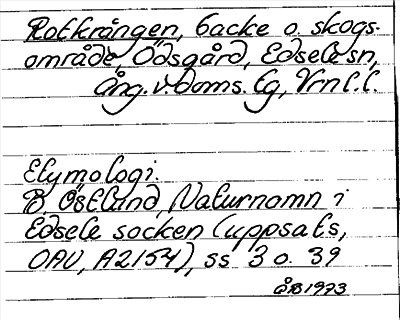 Rotkrången, backe o. skogs-
område, Ödsgård, Edsele sn,
Ång. v. doms. lg, Vrnl. l.
Etymologi.
B Östlund, Naturnamn i
Edsele socken (uppsats,
OAU, A2154), ss 3 o. 39
ÅB 1973